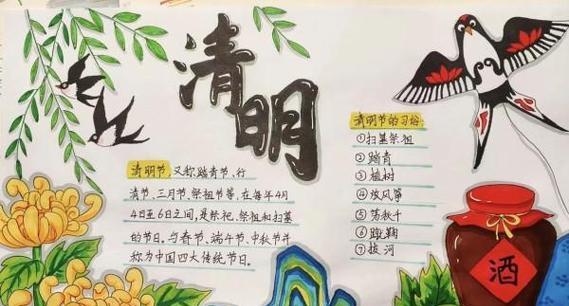 清明
清明节 又称踏青节、行
清节、三月节、祭祖节等,在每年4月
4日至6日之间,是祭祀、祭祖和扫墓
的节日。与春节、端午节、中秋节并
称为中国四大传统节日。
清明节的习俗:
①扫墓祭祖
②踏青
③植树
④放风筝
⑤荡秋千
⑥蹴鞠
⑦拔河
酒